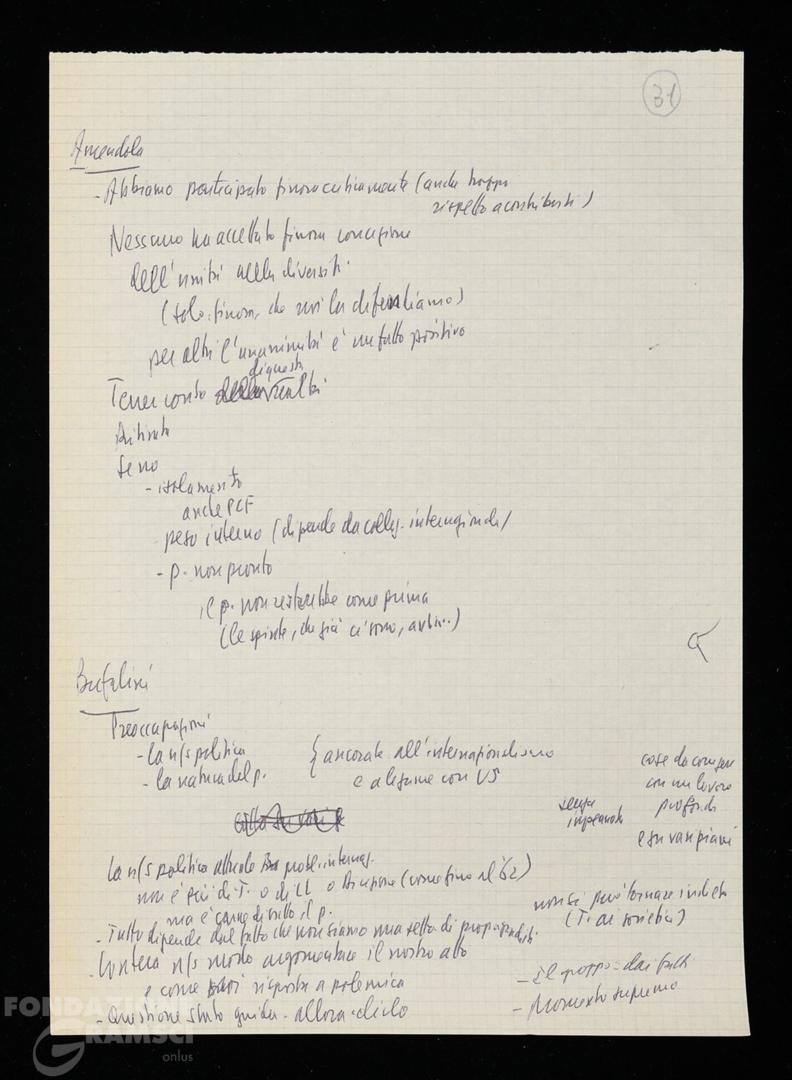 31
Amendola
- Abbiamo partecipato finora criticamente (anche troppo
rispetto a contributi)
Nessuno ha accettato finora concezione
dell'unità nella diversità.
(solo finora, che noi la difendiamo)
per altri l'unanimità è un fatto positivo
di questi
Tener conto della realtà
Attività
Se no
- isolamento
anche PCF
- peso interno (dipende da colleg. internazionale)
- p. non pronto
il p. non resterebbe come prima
(le spinte, che già ci sono,
Bufalini
Preoccupazioni
- la n/s politica
- la natura del p.
{ ancorate all'internazionalismo
e a legame con US
cose da
con un lavoro
profondo
e su vari piani
senza
impennate
La n/s politica probl. internaz.
non è più di T. o di LL o (come fino al '62)
ma è carne di tutto il p.
non si può tornare indietro
(T. ai sovietici)
- Tutto dipende dal fatto che non siamo una setta di propagandisti.
- Conterà n/s modo argomentare il nostro atto
e come risposta a polemica
- Questione stato guida - allora dirlo
- il dai fatti
- Momento supremo
FONDAZIONE
GRAMSCI
onlus